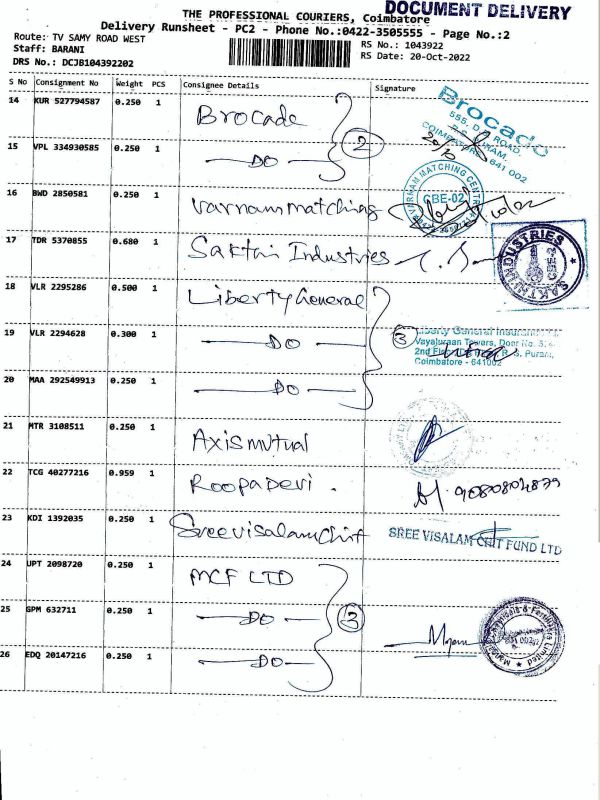 DOCUMENT DELIVERY
THE PROFESSIONAL COURIERS, Coimbatore
Delivery Runsheet - PC2 - Phone No.:0422-3505555 - Page No.:2
Route: TV SAMY ROAD WEST
Staff: BARANI
DRS No.: DCJB104392202
RS No.: 1043922
RS Date: 20-Oct-2022
S No Consignment No Weight PCS Consignee Details Signature
14 KUR 527794587 0.250 1 Brocade
Brocado
555, D.B. ROAD,
COIMBATORE - 641 002
20/10
15 VPL 334930585 0.250 1 DO 2
16 BWD 2850581 0.250 1 Varnam matching
VARNAM MATCHING CENTRE
CBE-02
17 TDR 5370855 0.680 1 Sakthi Industries
SAKTHI INDUSTRIES
CBE-2
18 VLR 2295286 0.500 1 Liberty General
19 VLR 2294628 0.300 1 DO 3
Liberty General Insurance
Vayaluraan Towers, Door No. 5
2nd R. S. Puram,
Coimbatore - 641002
20 MAA 292549913 0.250 1 DO
21 MTR 3108511 0.250 1 Axis mutual
22 TCG 40277216 0.959 1 Roopa Devi . 9080804879
23 KDI 1392035 0.250 1 Sree visalam chit
SREE VISALAM CHIT FUND LTD
24 UPT 2098720 0.250 1 MCF LTD
25 SPM 632711 0.250 1 DO 3
26 EDQ 20147216 0.250 1 DO